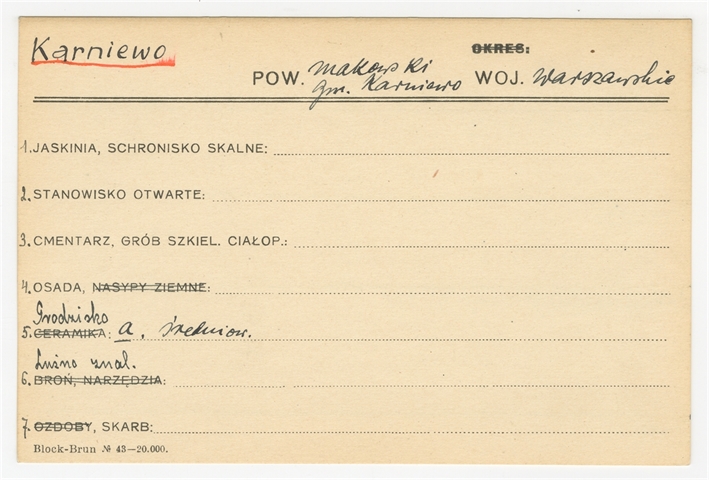 Karniewo
OKRES:
POW. makowski
gm. Karniewo
WOJ. Warszawskie
1. JASKINIA, SCHRONISKO SKALNE:
2. STANOWISKO OTWARTE:
3. CMENTARZ, GRÓB SZKIEL. CIAŁOP.:
4. OSADA, NASYPY ZIEMNE:
Grodzisko
5. CERAMIKA: a. średniow.
Luźno znal.
6. BROŃ, NARZĘDZIA:
7. OZDOBY, SKARB:
Block-Brun № 43—20.000.